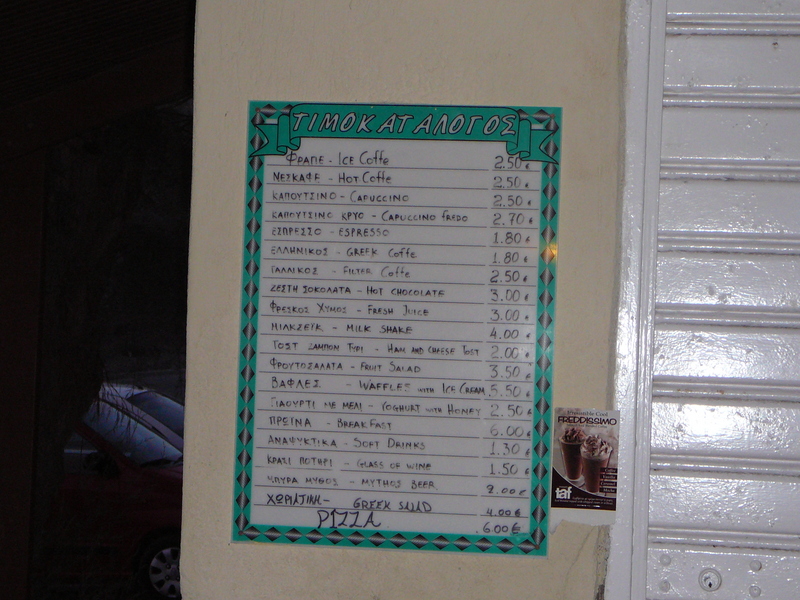 ΤΙΜΟΚΑΤΑΛΟΓΟΣ
ΦΡΑΠΕ - ICE Coffe 2.50€
ΝΕΣΚΑΦΕ - HOT Coffe 2.50€
ΚΑΠΟΥΤΣΙΝΟ - CAPUCCINO 2.50€
ΚΑΠΟΥΤΣΙΝΟ ΚΡΥΟ - CAPUCCINO FREDO 2.70€
ΕΣΠΡΕΣΣΟ - ESPRESSO 1.80€
ΕΛΛΗΝΙΚΟΣ - GREEK Coffe 1.80€
ΓΑΛΛΙΚΟΣ - FILTER Coffe 2.50€
ΖΕΣΤΗ ΣΟΚΟΛΑΤΑ - HOT CHOCOLATE 3.00€
ΦΡΕΣΚΟΣ ΧΥΜΟΣ - FRESH JUICE 3.00€
ΜΙΛΚΣΕΥΚ - MILK SHAKE 4.00€
ΤΟΣΤ ΖΑΜΠΟΝ ΤΥΡΙ - HAM AND CHEESE TOST 2.00€
ΦΡΟΥΤΟΣΑΛΑΤΑ - FRUIT SALAD 3.50€
ΒΑΦΛΕΣ - WAFFLES WITH ICE CREAM 5.50€
ΓΙΑΟΥΡΤΙ ΜΕ ΜΕΛΙ - YOGHURT WITH HONEY 2.50€
ΠΡΩΙΝΑ - BREAKFAST 6.00€
ΑΝΑΨΥΚΤΙΚΑ - SOFT DRINKS 1.30€
ΚΡΑΣΙ ΠΟΤΗΡΙ - GLASS OF WINE 1.50€
ΜΠΥΡΑ ΜΥΘΟΣ - MYTHOS BEER .00€
ΧΩΡΙΑΤΙΚΗ - GREEK SALAD 4.00€
PIZZA 6.00€
FREDDISSIMO
taf